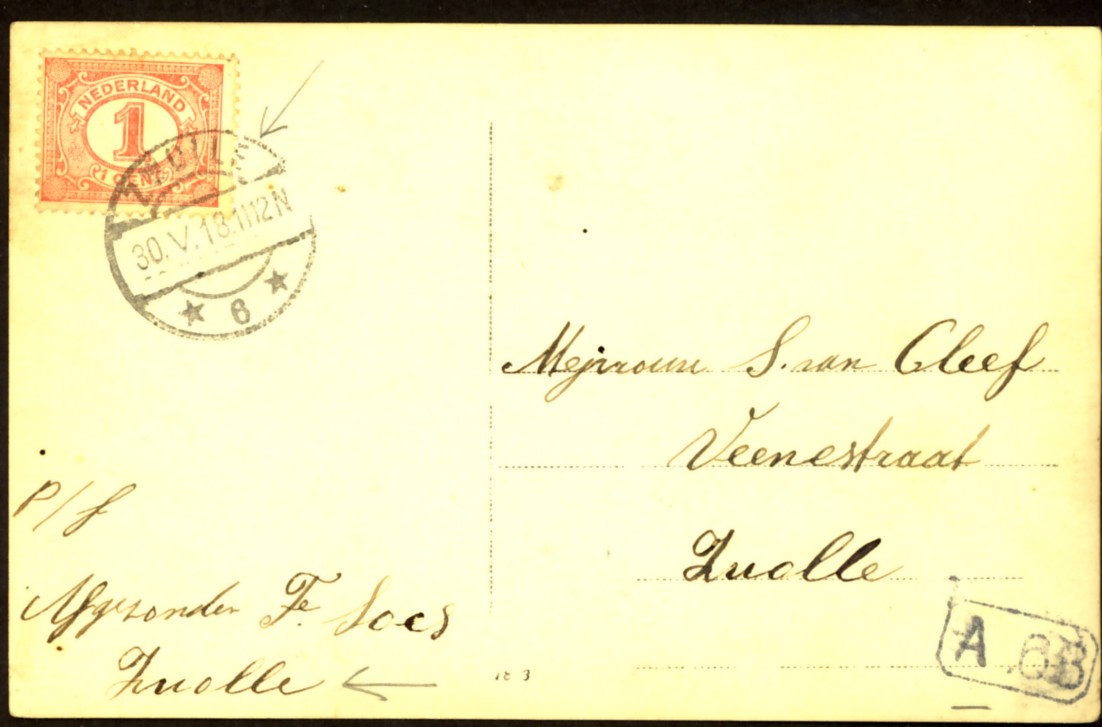 NEDERLAND
1
1 CENT
ZWOLLE
30.V.18.11-12N
6
Mejrouw S. van Cleef
Veenestraat
Zwolle
P/f
Afgezonden Fe. Soes
Zwolle
A 6B